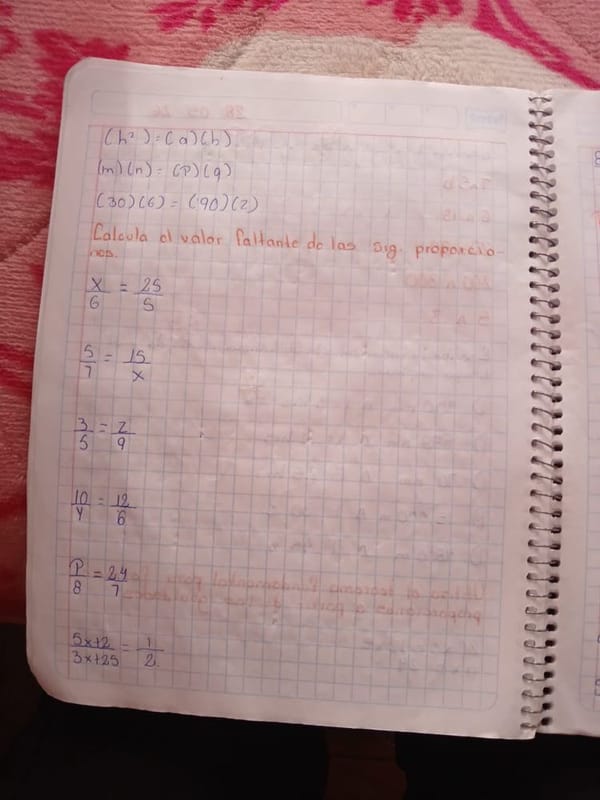 (h²)=(a)(b)
(m)(n)=(P)(q)
(30)(6)=(90)(2)
Calcula el valor faltante de las sig. proporcio-
nes.
x/6 = 25/5
5/7 = 15/x
3/5 = z/9
10/y = 12/6
P/8 = 24/7
5x+2/3x+25 = 1/2